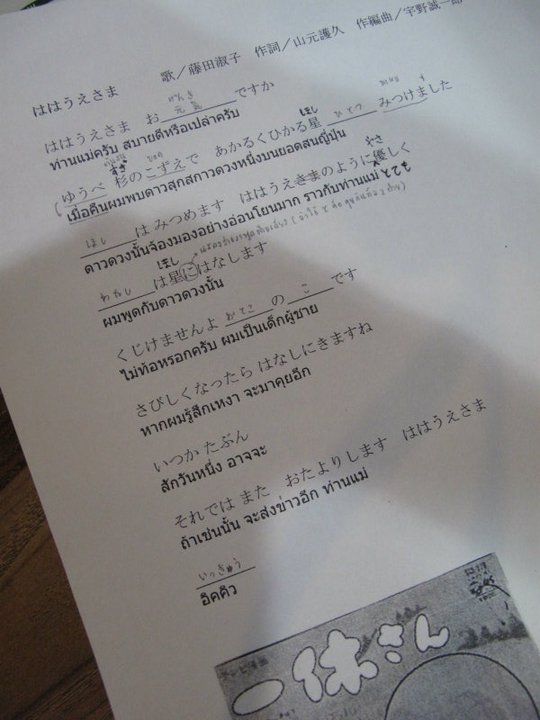 ははうえさま 歌／藤田淑子 作詞／山元護久 作編曲／宇野誠一郎
ははうえさま お元気ですか
げんき
ท่านแม่ครับ สบายดีหรือเปล่าครับ
ゆうべ 杉のこずえで あかるくひかる星 ひとつ みつけました
すぎ ยอด ほし
เมื่อคืนผมพบดาวสุกสกาวดวงหนึ่งบนยอดสนญี่ปุ่น
ほし は みつめます ははうえさまのように優しく
やさ
ดาวดวงนั้นจ้องมองอย่างอ่อนโยนมาก ราวกับท่านแม่ とても
わたし は星にはなします
ほし
ผมพูดกับดาวดวงนั้น
くじけませんよ おとこ の こ です
ไม่ท้อหรอกครับ ผมเป็นเด็กผู้ชาย
さびしくなったら はなしにきますね
หากผมรู้สึกเหงา จะมาคุยอีก
いつか たぶん
สักวันหนึ่ง อาจจะ
それでは また おたよりします ははうえさま
ถ้าเช่นนั้น จะส่งข่าวอีก ท่านแม่
いっきゅう
อิคคิว
一休さん